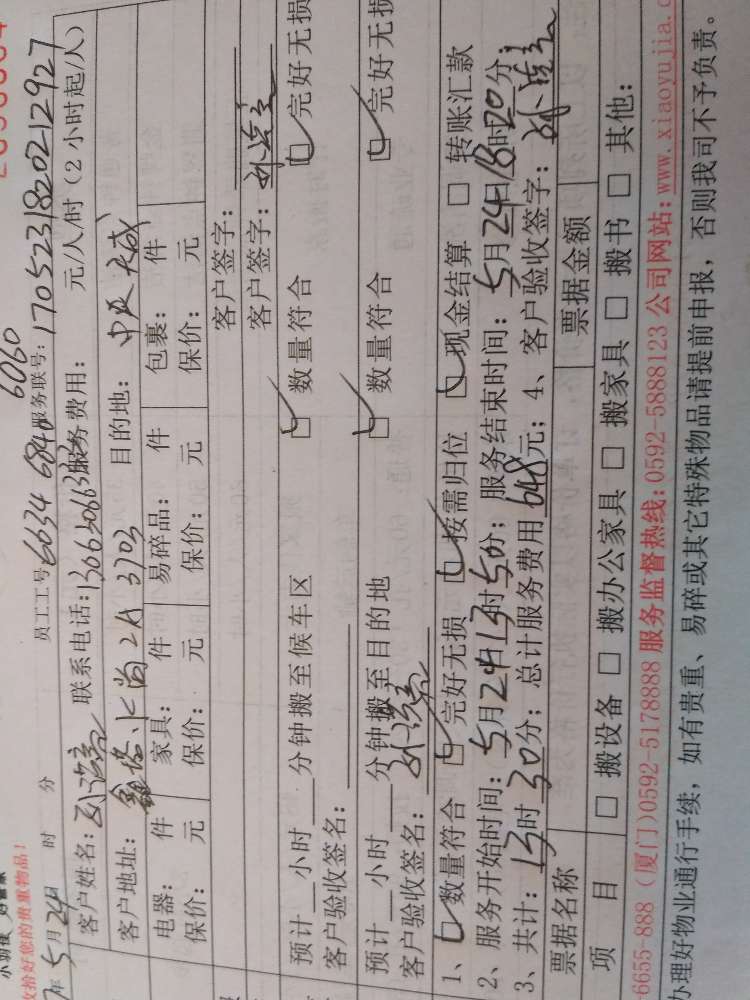 收拾好您的贵重物品!
年 5 月 24 日 时 分 员工工号: 6034 6840 6060 服务联号: 1705231820212927
客户姓名: 联系电话: 服务费用: 元/人/时（2小时起/人）
客户地址: 2A 3703 目的地: 中庚天成
电器: 件 家具: 件 易碎品: 件 包裹: 件
保价: 元 保价: 元 保价: 元 保价: 元
客户签字:
客户签字:
预计 小时 分钟搬至候车区 数量符合 完好无损
客户验收签名:
预计 小时 分钟搬至目的地 数量符合 完好无损
客户验收签名:
1、 数量符合 完好无损 按需归位 现金结算 转账汇款
2、服务开始时间: 5月24日13时50分; 服务结束时间: 5月24日18时20分;
3、共计: 13时30分; 总计服务费用648元; 4、客户验收签字:
票据名称 票据金额
项 目 搬设备 搬办公家具 搬家具 搬书 其他:
6655-888（厦门)0592-5178888 服务监督热线: 0592-5888123 公司网站: www.xiaoyujia.c
办理好物业通行手续，如有贵重、易碎或其它特殊物品请提前申报，否则我司不予负责。